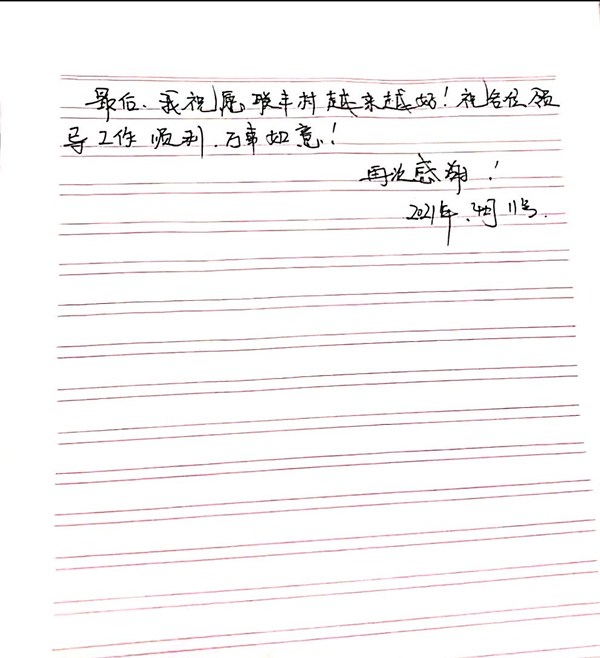 最后、我祝愿联丰村越来越好!祝各位领
导工作顺利、万事如意!
再次感谢!
2021年.4月11号.